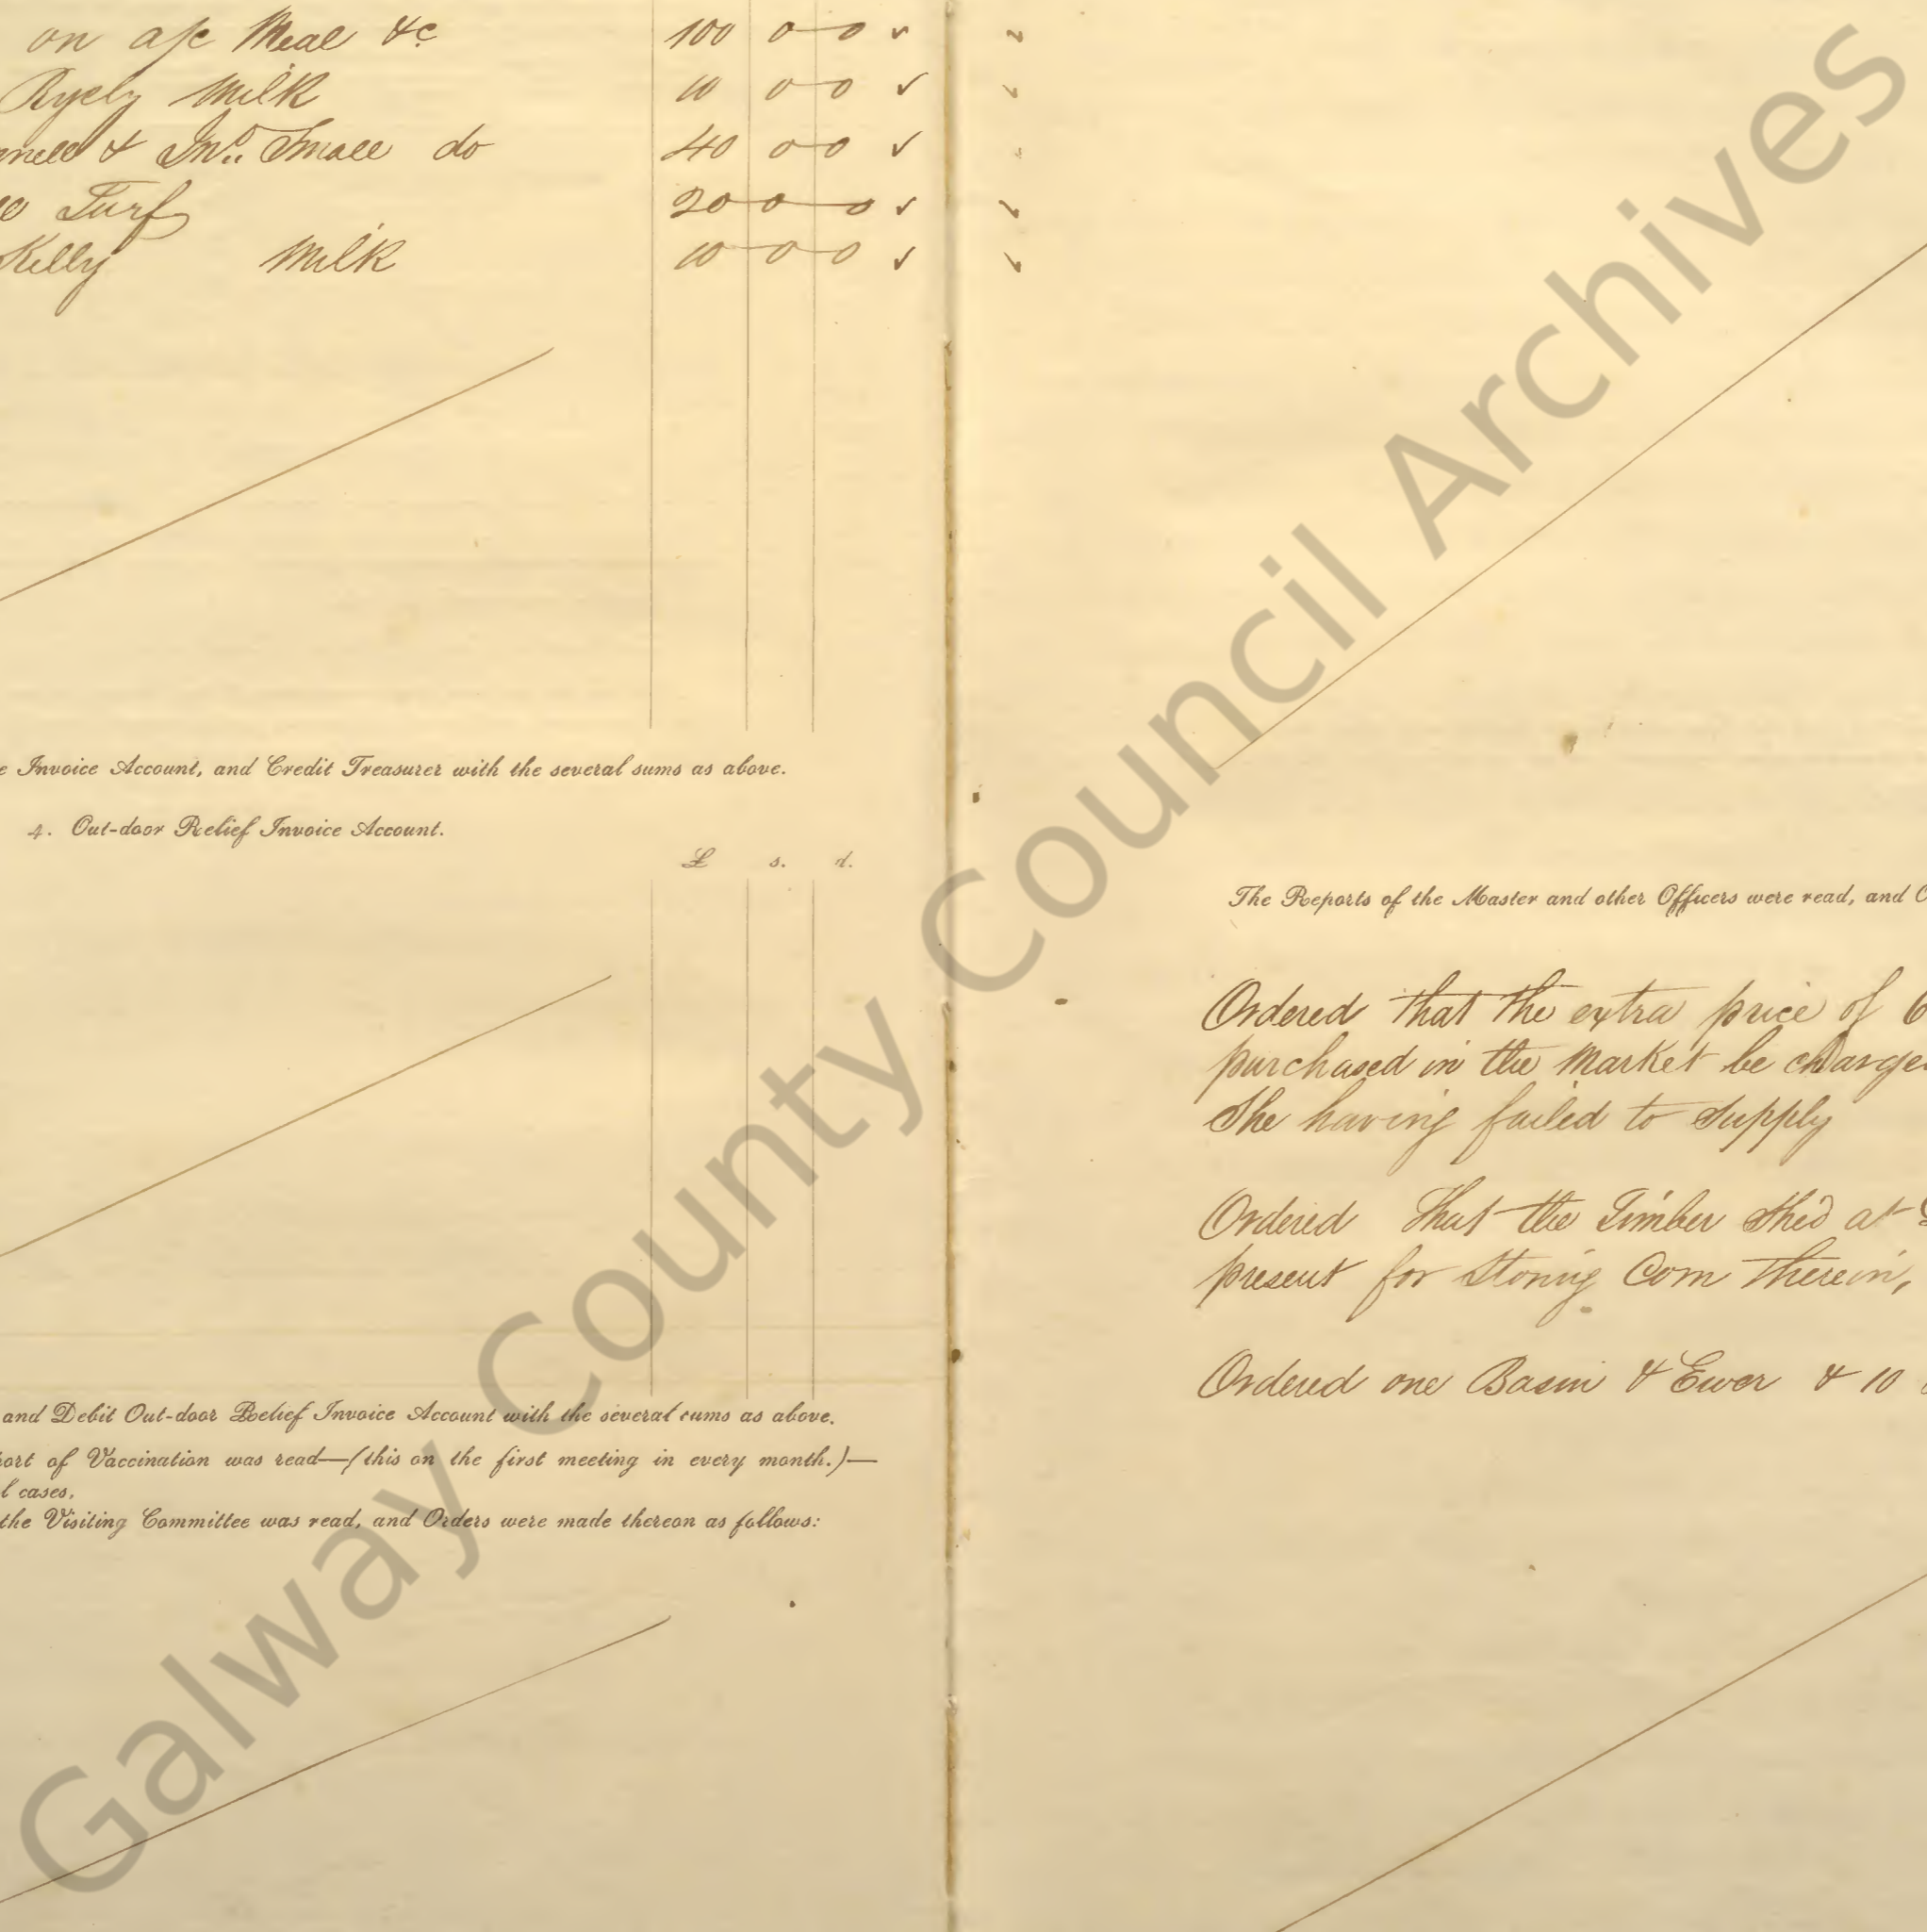 on a/c Meal &c 100 0 0 ✓
Milk 10 0 0 ✓
& Jno. Small do 40 0 0 ✓
Turf 20 0 0 ✓
Kelly Milk 10 0 0 ✓
Invoice Account, and Credit Treasurer with the several sums as above.
4. Out-door Relief Invoice Account.
£ s. d.
and Debit Out-door Relief Invoice Account with the several sums as above.
ort of Vaccination was read—(this on the first meeting in every month.)—
l cases,
the Visiting Committee was read, and Orders were made thereon as follows:
The Reports of the Master and other Officers were read, and
Ordered that the extra price of
purchased in the Market be charge
She having failed to supply
Ordered That the Timber Shed at
present for Storing Corn therein,
Ordered one Basin & Ewer & 10
Galway County Council Archives